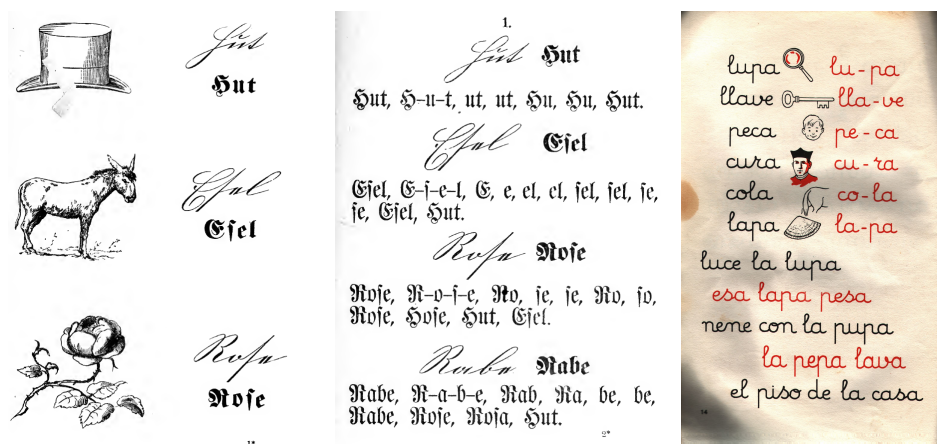 Hut
Hut
Eſel
Eſel
Roſe
Roſe
1*
1.
Hut Hut
Hut, H-u-t, ut, ut, Hu, Hu, Hut.
Eſel Eſel
Eſel, E-ſ-e-l, E, e, el, el, ſel, ſel, ſe,
ſe, Eſel, Hut.
Roſe Roſe
Roſe, R-o-ſ-e, Ro, ſe, ſe, Ro, ſo,
Roſe, Hoſe, Hut, Eſel.
Rabe Rabe
Rabe, R-a-b-e, Rab, Ra, be, be,
Rabe, Roſe, Roſa, Hut.
2*
lupa lu-pa
llave lla-ve
peca pe-ca
cura cu-ra
cola co-la
lapa la-pa
luce la lupa
esa lapa pesa
nene con la pupa
la pepa lava
el piso de la casa
14